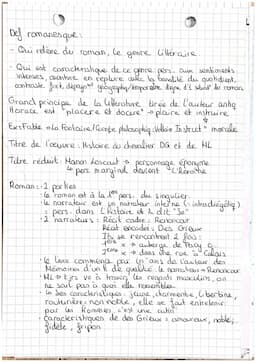 Def romanesque :
- Qui relève du roman, le genre littéraire
- Qui est caractéristique de ce genre : pers. aux sentiments
intenses, aventure en rupture avec la banalité du quotidien,
contraste fort,
Grand principe de la littérature tirée de l'auteur antiq
Horace est "placere et docere" → plaire et instruire
Ex : Fable → La Fontaine / Conte philosophiq : Voltaire Instruct° morale
Titre de l'œuvre : Histoire du chevalier DG et de ML
Titre réduit : Manon Lescaut → personnage éponyme
↳ pers marginal devient l'Héroïne
Roman : - 2 parties
- le roman est à la 1ère pers. du singulier
- le narrateur est un narrateur interne
: pers. dans l'histoire et il dit "Je"
- 2 narrateurs : Récit cadre : Renoncour
Récit encadré : Des Grieux
Ils se rencontrent 2 fois :
1ère x → auberge de Pacy
2ème x → dans une rue à Calais
- Le livre commence par un de l'auteur des
Mémoires d'un H de qualité : le narrateur = Renoncour
- ML → tjrs vu à travers les regards masculins, on
ne sait pas à quoi elle ressemble.
↳ Ses caractéristiques : jeune, charmante, libertine,
roturière : non noble, elle se fait entretenir
par les Hommes, c'est une catin
- Caractéristiques de des Grieux : amoureux, noble,
fidèle, fripon